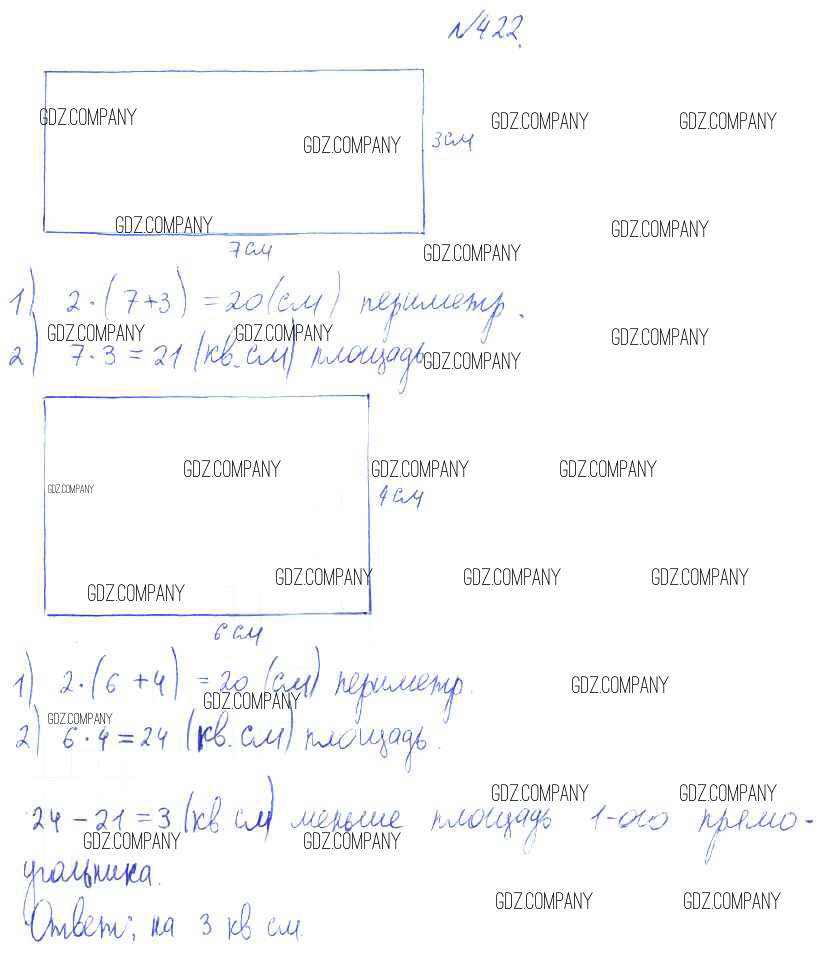 №422.
GDZ.COMPANY
GDZ.COMPANY GDZ.COMPANY
3см
GDZ.COMPANY
GDZ.COMPANY
GDZ.COMPANY
7см
GDZ.COMPANY
1) 2·(7+3) = 20(см) периметр.
GDZ.COMPANY GDZ.COMPANY
GDZ.COMPANY
2) 7·3 = 21 (кв.см) площадь
GDZ.COMPANY
GDZ.COMPANY GDZ.COMPANY GDZ.COMPANY
GDZ.COMPANY
4см
GDZ.COMPANY GDZ.COMPANY GDZ.COMPANY
GDZ.COMPANY
6см
1) 2·(6+4) = 20 (см) периметр.
GDZ.COMPANY
GDZ.COMPANY
GDZ.COMPANY
2) 6·4 = 24 (кв.см) площадь.
GDZ.COMPANY GDZ.COMPANY
24 – 21 = 3 (кв см) меньше площадь 1-ого прямо-
GDZ.COMPANY GDZ.COMPANY
угольника.
GDZ.COMPANY GDZ.COMPANY
Ответ: на 3 кв см.